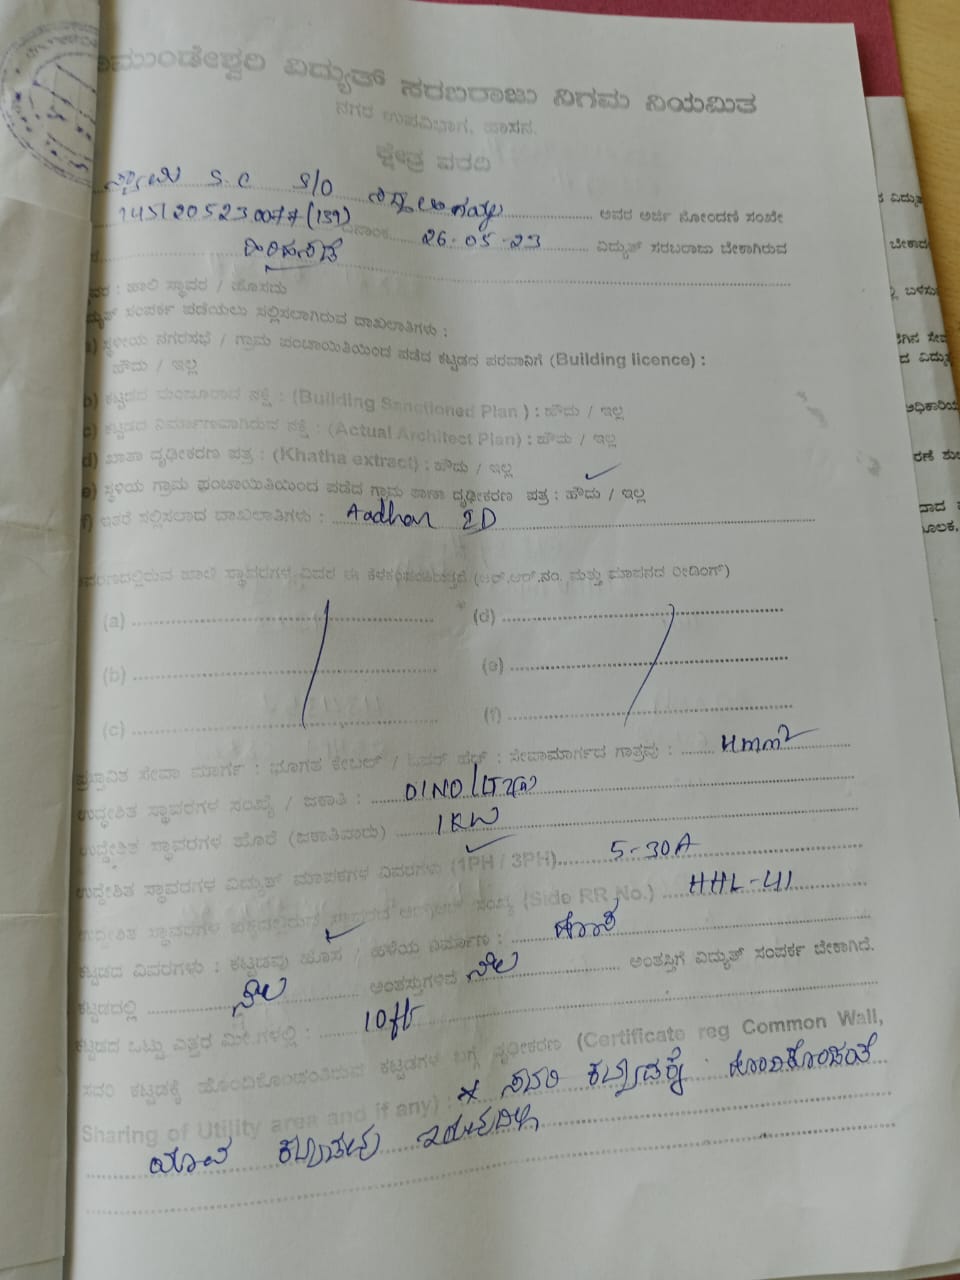 ಚಾಮುಂಡೇಶ್ವರಿ ವಿದ್ಯುತ್ ಸರಬರಾಜು ನಿಗಮ ನಿಯಮಿತ
ನಗರ ಉಪವಿಭಾಗ, ಹಾಸನ.
ಕ್ಷೇತ್ರ ವರದಿ
S.C S/O ಅವರ ಅರ್ಜಿ ನೋಂದಣಿ ಸಂಖ್ಯೆ
1451205230077 (159) ದಿನಾಂಕ 26-05-23 ವಿದ್ಯುತ್ ಸರಬರಾಜು ಬೇಕಾಗಿರುವ
: ಹಾಲಿ ಸ್ಥಾವರ / ಹೊಸದು
ಸಂಪರ್ಕ ಪಡೆಯಲು ಸಲ್ಲಿಸಲಾಗಿರುವ ದಾಖಲಾತಿಗಳು :
a) ಸ್ಥಳೀಯ ನಗರಸಭೆ / ಗ್ರಾಮ ಪಂಚಾಯಿತಿಯಿಂದ ಪಡೆದ ಕಟ್ಟಡದ ಪರವಾನಿಗೆ (Building licence) :
ಹೌದು / ಇಲ್ಲ
b) ಕಟ್ಟಡದ ಮಂಜೂರಾದ ನಕ್ಷೆ : (Building Sanctioned Plan ) : ಹೌದು / ಇಲ್ಲ
c) ಕಟ್ಟಡದ ನಿರ್ಮಾಣವಾಗಿರುವ ನಕ್ಷೆ : (Actual Architect Plan) : ಹೌದು / ಇಲ್ಲ
d) ಖಾತಾ ದೃಢೀಕರಣ ಪತ್ರ : (Khatha extract) : ಹೌದು / ಇಲ್ಲ
e) ಸ್ಥಳಿಯ ಗ್ರಾಮ ಪಂಚಾಯಿತಿಯಿಂದ ಪಡೆದ ಗ್ರಾಮ ಠಾಣಾ ದೃಢೀಕರಣ ಪತ್ರ : ಹೌದು / ಇಲ್ಲ
f) ಇತರೆ ಸಲ್ಲಿಸಲಾದ ದಾಖಲಾತಿಗಳು : Aadhar ID
ಹಾಲಿ ಸ್ಥಾವರಗಳ ವಿವರ ಈ ಕೆಳಕಂಡಂತಿರುತ್ತದೆ (ಆರ್.ಆರ್.ನಂ. ಮತ್ತು ಮಾಪನದ ರೀಡಿಂಗ್)
(a) (d)
(b) (e)
(c) (f)
ಪ್ರಸ್ತಾವಿತ ಸೇವಾ ಮಾರ್ಗ : ಭೂಗತ ಕೇಬಲ್ / ಓವರ್ ಹೆಡ್ : ಸೇವಾಮಾರ್ಗದ ಗಾತ್ರವು : 4mm2
ಉದ್ದೇಶಿತ ಸ್ಥಾವರಗಳ ಸಂಖ್ಯೆ / ಜಕಾತಿ : 01NO /
ಉದ್ದೇಶಿತ ಸ್ಥಾವರಗಳ ಹೊರೆ (ಜಕಾತಿವಾರು) 1KW
ಉದ್ದೇಶಿತ ಸ್ಥಾವರಗಳ ವಿದ್ಯುತ್ ಮಾಪಕಗಳ ವಿವರಗಳು (1PH / 3PH) 5-30A
ಉದ್ದೇಶಿತ ಸ್ಥಾವರಗಳ ಪಕ್ಕದಲ್ಲಿರುವ ಸ್ಥಾವರದ ಆರ್.ಆರ್ ಸಂಖ್ಯೆ (Side RR No.) HHL-41
ಕಟ್ಟಡದ ವಿವರಗಳು : ಕಟ್ಟಡವು ಹೊಸ / ಹಳೆಯ ನಿರ್ಮಾಣ :
ಕಟ್ಟಡದಲ್ಲಿ ನೆಲ ಅಂತಸ್ತುಗಳಿವೆ ನೆಲ ಅಂತಸ್ತಿಗೆ ವಿದ್ಯುತ್ ಸಂಪರ್ಕ ಬೇಕಾಗಿದೆ.
ಕಟ್ಟಡದ ಒಟ್ಟು ಎತ್ತರ ಮೀ.ಗಳಲ್ಲಿ : 10ft
ಸದರಿ ಕಟ್ಟಡಕ್ಕೆ ಹೊಂದಿಕೊಂಡಂತಿರುವ ಕಟ್ಟಡಗಳ ಬಗ್ಗೆ ದೃಢೀಕರಣ (Certificate reg Common Wall,
Sharing of Utility area and if any) : * ಸದರಿ ಕಟ್ಟಡಕ್ಕೆ ಹೊಂದಿಕೊಂಡಂತೆ
ಯಾವ ಕಟ್ಟಡವು ಇರುವುದಿಲ್ಲ